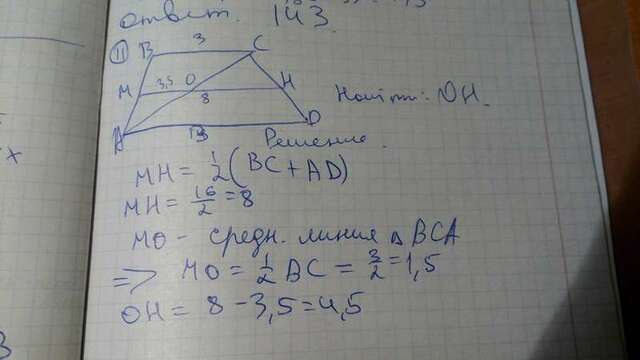 ответ. 143
11
B 3 C
M 3,5 O H
8
A 13 D
Найти: OH.
Решение.
MH = 1/2 (BC + AD)
MH = 16/2 = 8
MO - средн. линия △ BCA
=> MO = 1/2 BC = 3/2 = 1,5
OH = 8 - 3,5 = 4,5